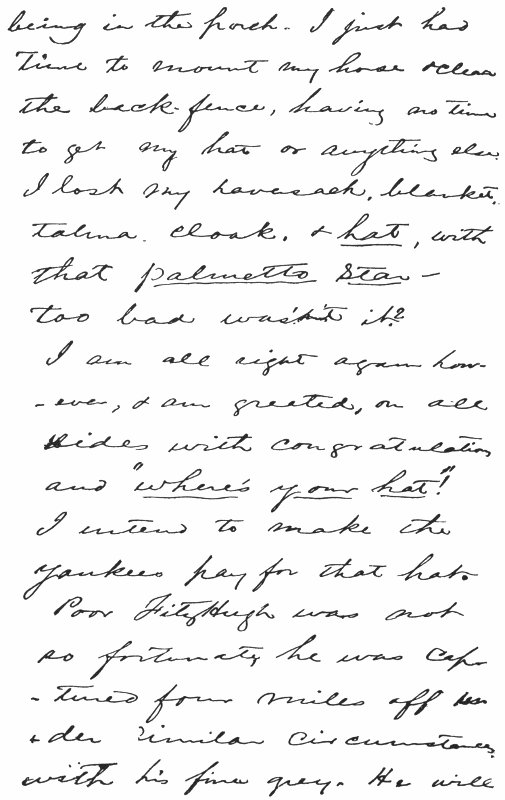 being in the porch. I just had
time to mount my horse & clear
the back-fence, having no time
to get my hat or anything else.
I lost my haversack, blanket,
talma. cloak. & hat, with
that palmetto Star –
too bad wasn't it?
I am all right again how-
-ever, & am greeted, on all
sides with congratulations
and "where's your hat"!
I intend to make the
Yankees pay for that hat.
Poor FitzHugh was not
so fortunate, he was cap-
-tured four miles off un
-der similar circumstances.
with his fine grey. He will